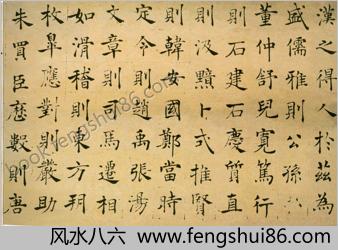 漢之得人於茲為
盛儒雅則公孫
董仲舒兒寬篤行
則石建石慶質直
則汲黯卜式推賢
則韓安國鄭當時
定令則趙禹張湯
文章則司馬遷相
如滑稽則東方朔
枚皋應對則嚴助
朱買臣歷數則唐
book.fengshui86.com
风水八六 www.fengshui86.com